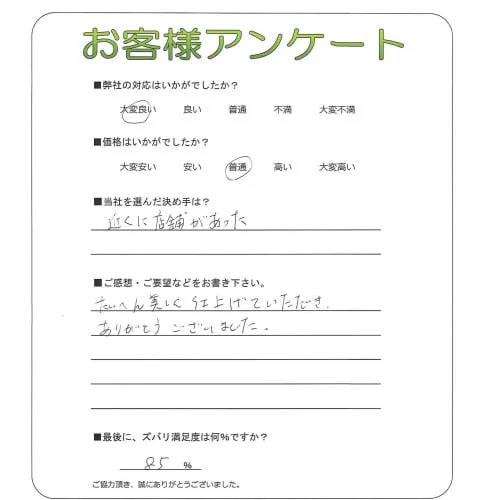 お客様アンケート
■弊社の対応はいかがでしたか?
大変良い 良い 普通 不満 大変不満
■価格はいかがでしたか?
大変安い 安い 普通 高い 大変高い
■当社を選んだ決め手は?
近くに店舗があった
■ご感想・ご要望などをお書き下さい。
たいへん美しく仕上げていただき、
ありがとうございました。
■最後に、ズバリ満足度は何%ですか?
85 %
ご協力頂き、誠にありがとうございました。